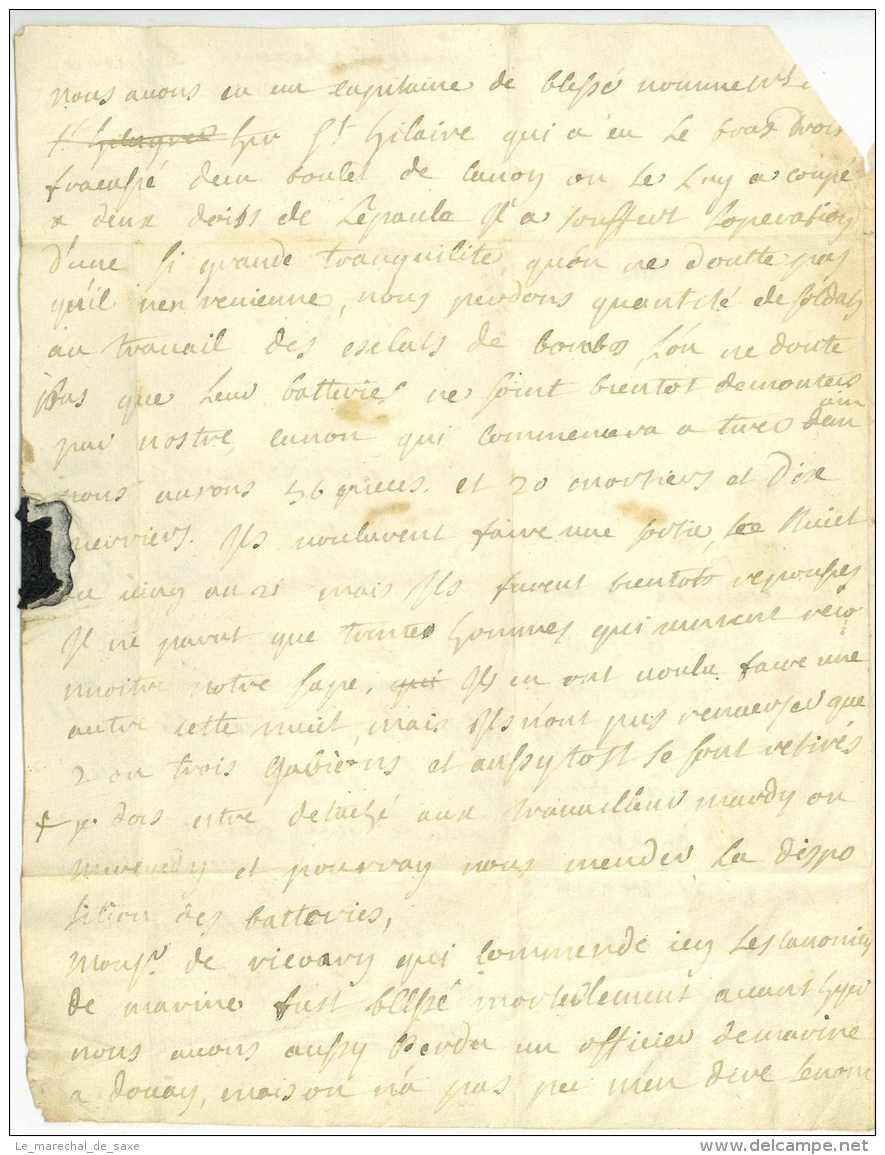 nous auons eu un capitaine de blessé nomme
St Hilaire qui a eu Le bras droit
fracassé dun boulet de canon on Le Luy a coupé
a deux doits de Lepaule Il a souffert Loperation
d'une si grande tranquilité, qu'on ne doutte pas
qu'il n'en reuienne, nous perdons quantité de soldats
au trauail des esclats de bombes, L'on ne doute
pas que Leur batteries ne soint bientot demontees
par nostre canon qui commencera a tirer demain
nous aurons 56 pieces, et 20 mortiers et dix
pierriers. Ils voulurent faire une sortie, Le Nuict
du cinq au 21 mais Ils furent bientots repousses
Il ne parut que trentes hommes qui vinrent reco
nnoitre notre sape, qui Ils en ont voulu faire une
autre cette nuit, mais Ils n'ont pas renuerser que
2 ou trois Gabiens et aussytost se sont retirés
je dois estre detaché aux trauailleur mardy ou
mercredy et pourray vous mender La dispo
sition des batteries,
Monsr. de ricoary qui commende icy Les canoniers
de marine fust blessé mortellement auant hyer
nous auons aussy Perdu un officier de marine
a douay, mais on n'a pas peu men dire Le nom
Le_marechal_de_saxe
delcampe.net